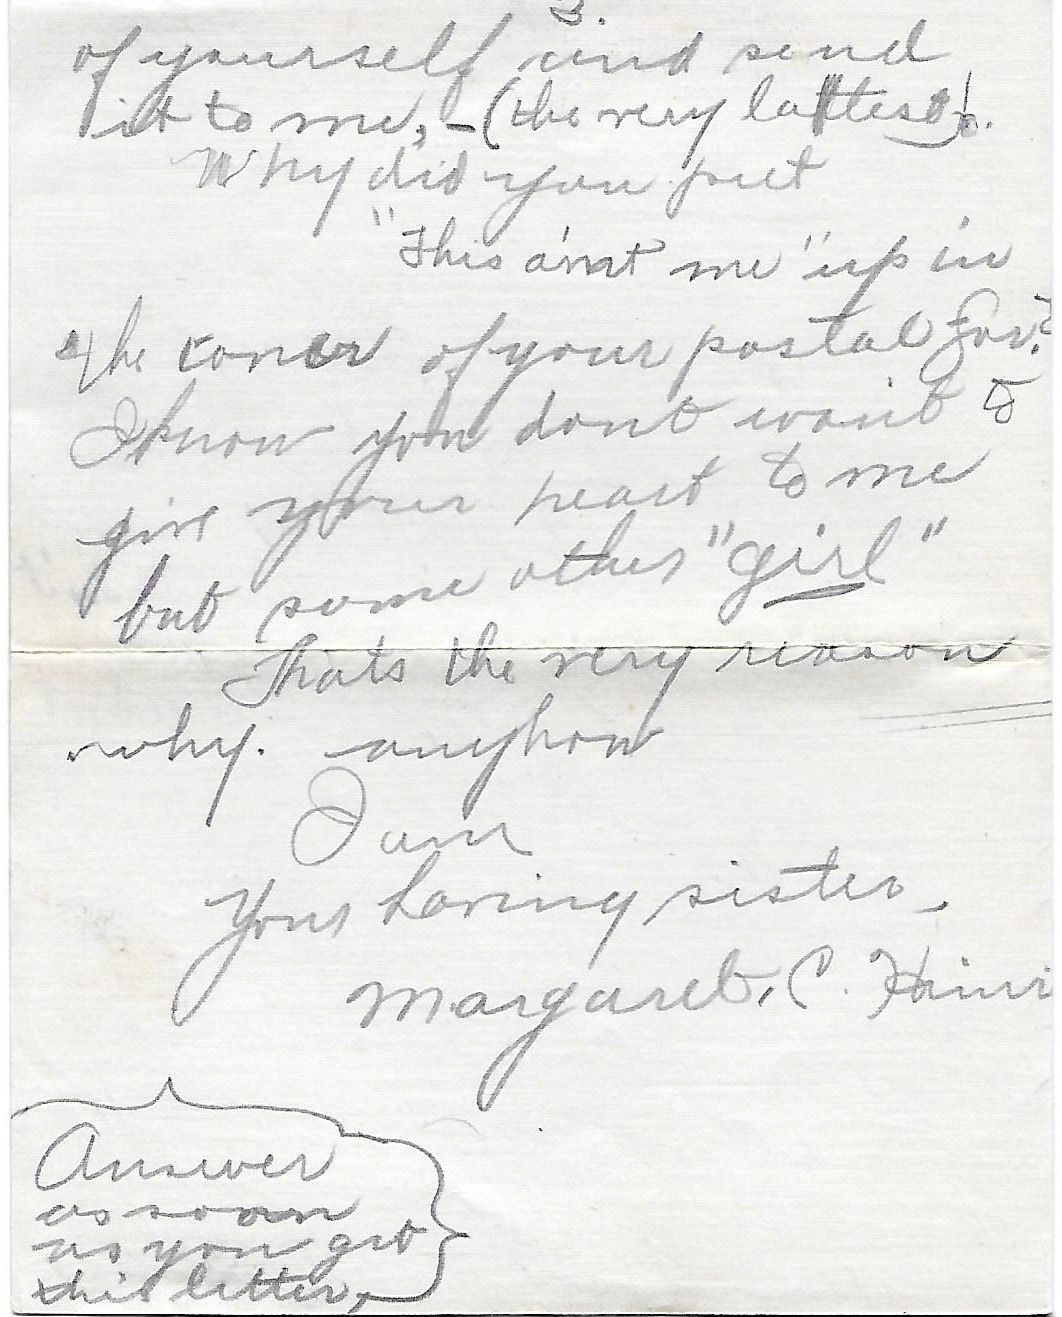 3.
of yourself and send
it to me, - (the very lattest).
Why did you put
"This a'int me" up in
the coner of your postal for?
I know you dont want to
give your heart to me
but some other "girl"
Thats the very reason
why. anyhow
I am
Your loving sister -
Margaret. C.
Answer
as soon
as you get
this letter,